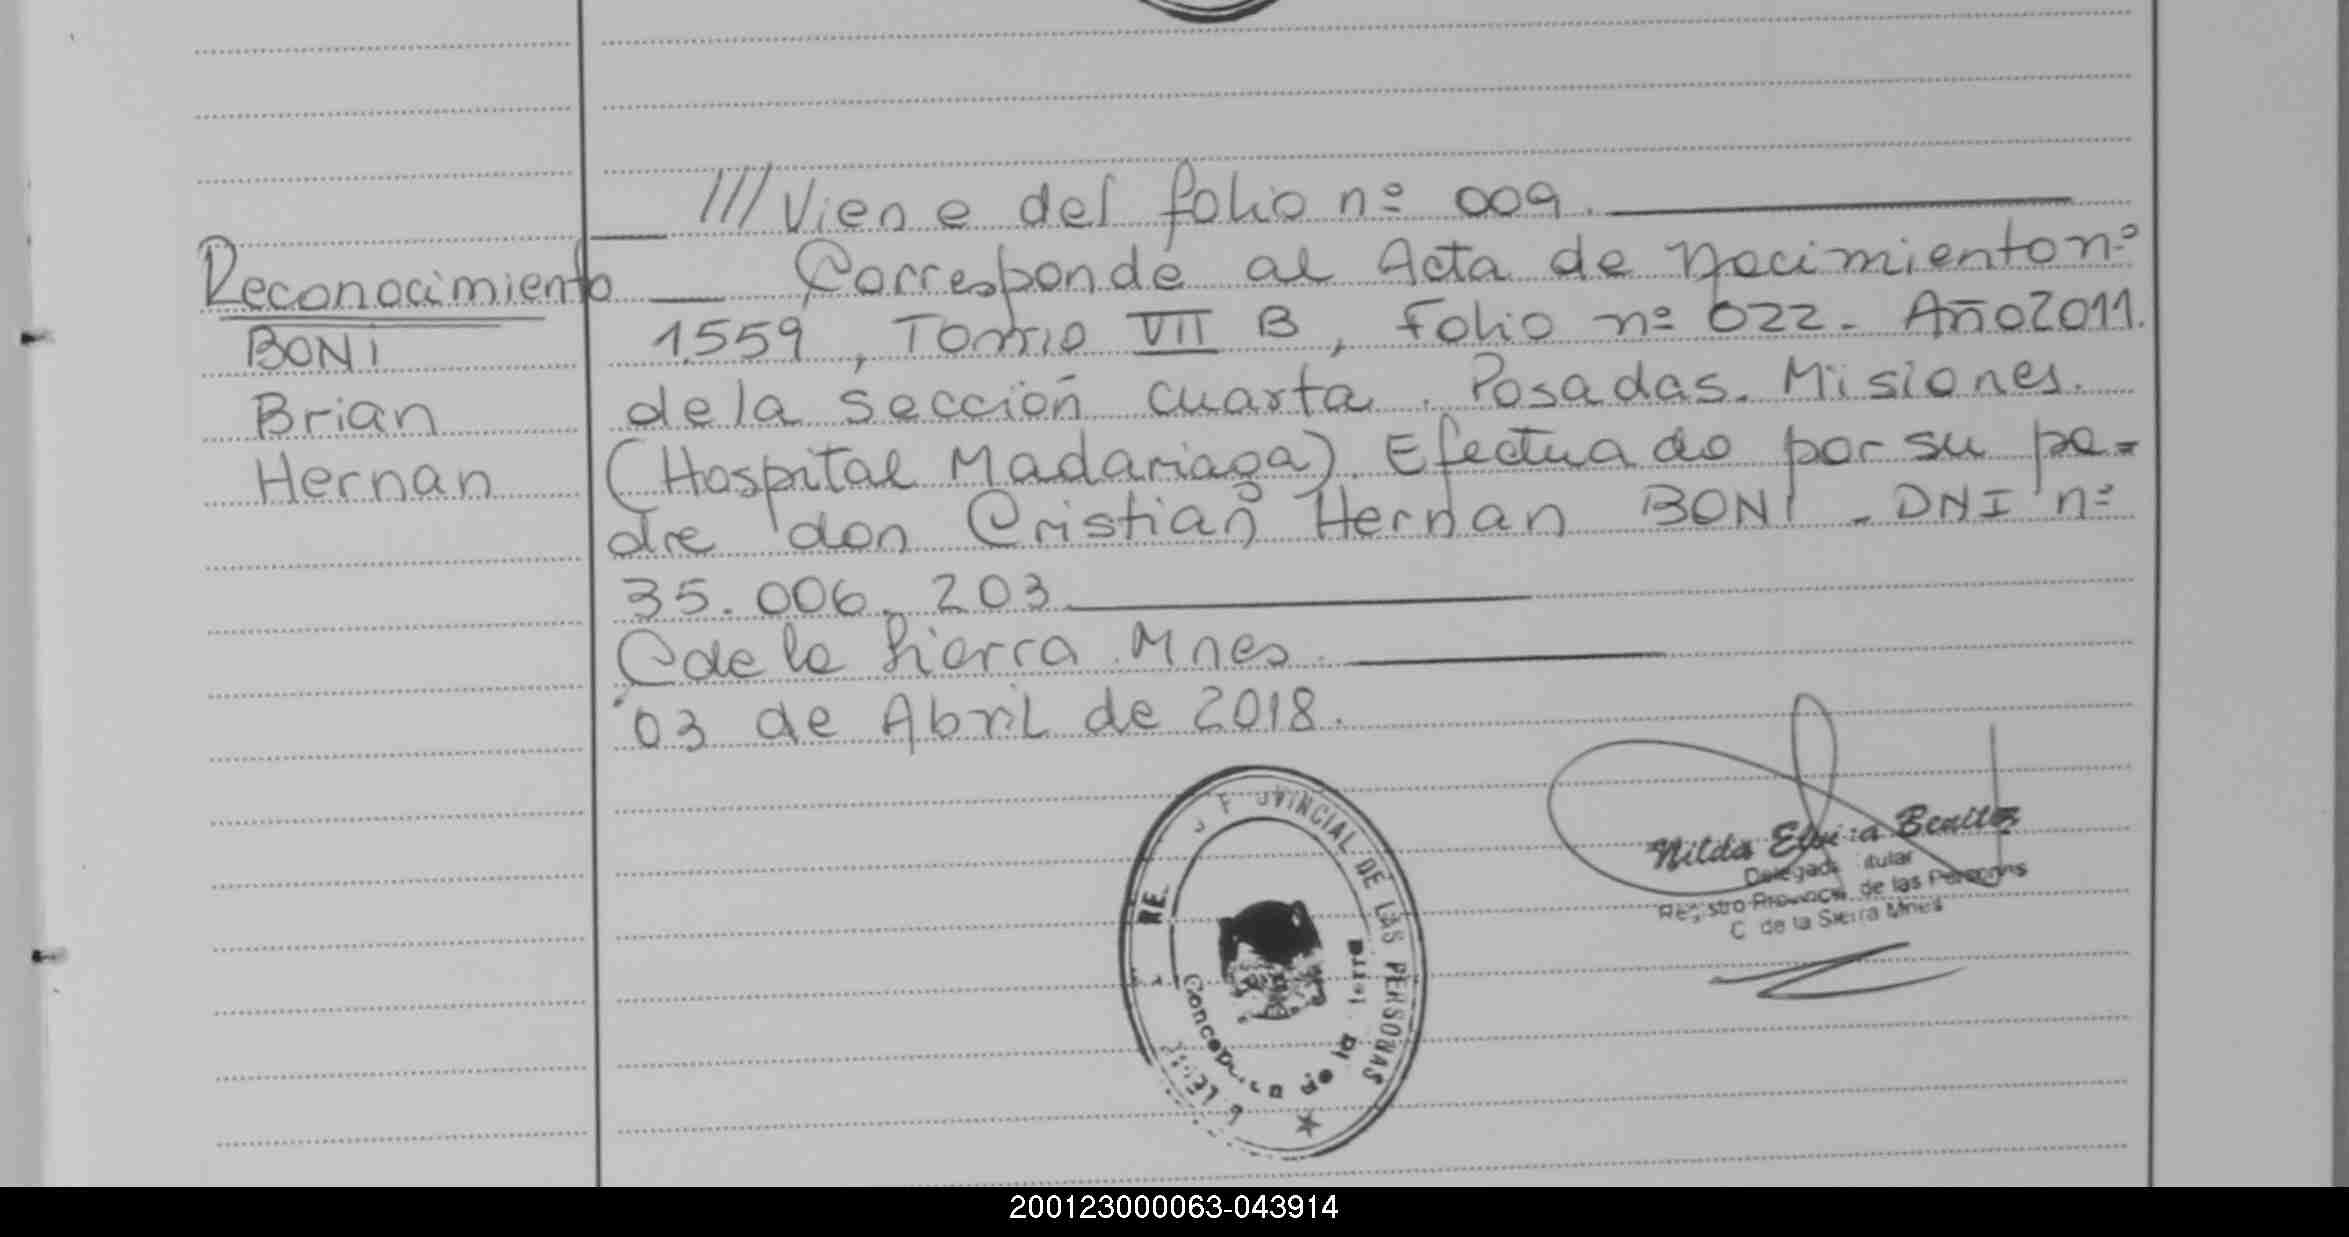 ///Viene del folio nº 009.
Reconocimiento
BONI
Brian
Hernan
Corresponde al Acta de Nacimiento nº
1559, Tomo VII B, Folio nº 022. Año 2011.
de la sección cuarta. Posadas. Misiones.
(Hospital Madariaga). Efectuado por su pa=
dre don Cristian Hernan BONI. DNI nº
35.006.203
C de la Sierra Mnes.
03 de Abril de 2018.
PROVINCIAL DE LAS PERSONAS
Concepción de la Sierra
Nilda Elvira Benitez
Delegada Titular
Registro Provincial de las Personas
C de la Sierra Mnes
200123000063-043914